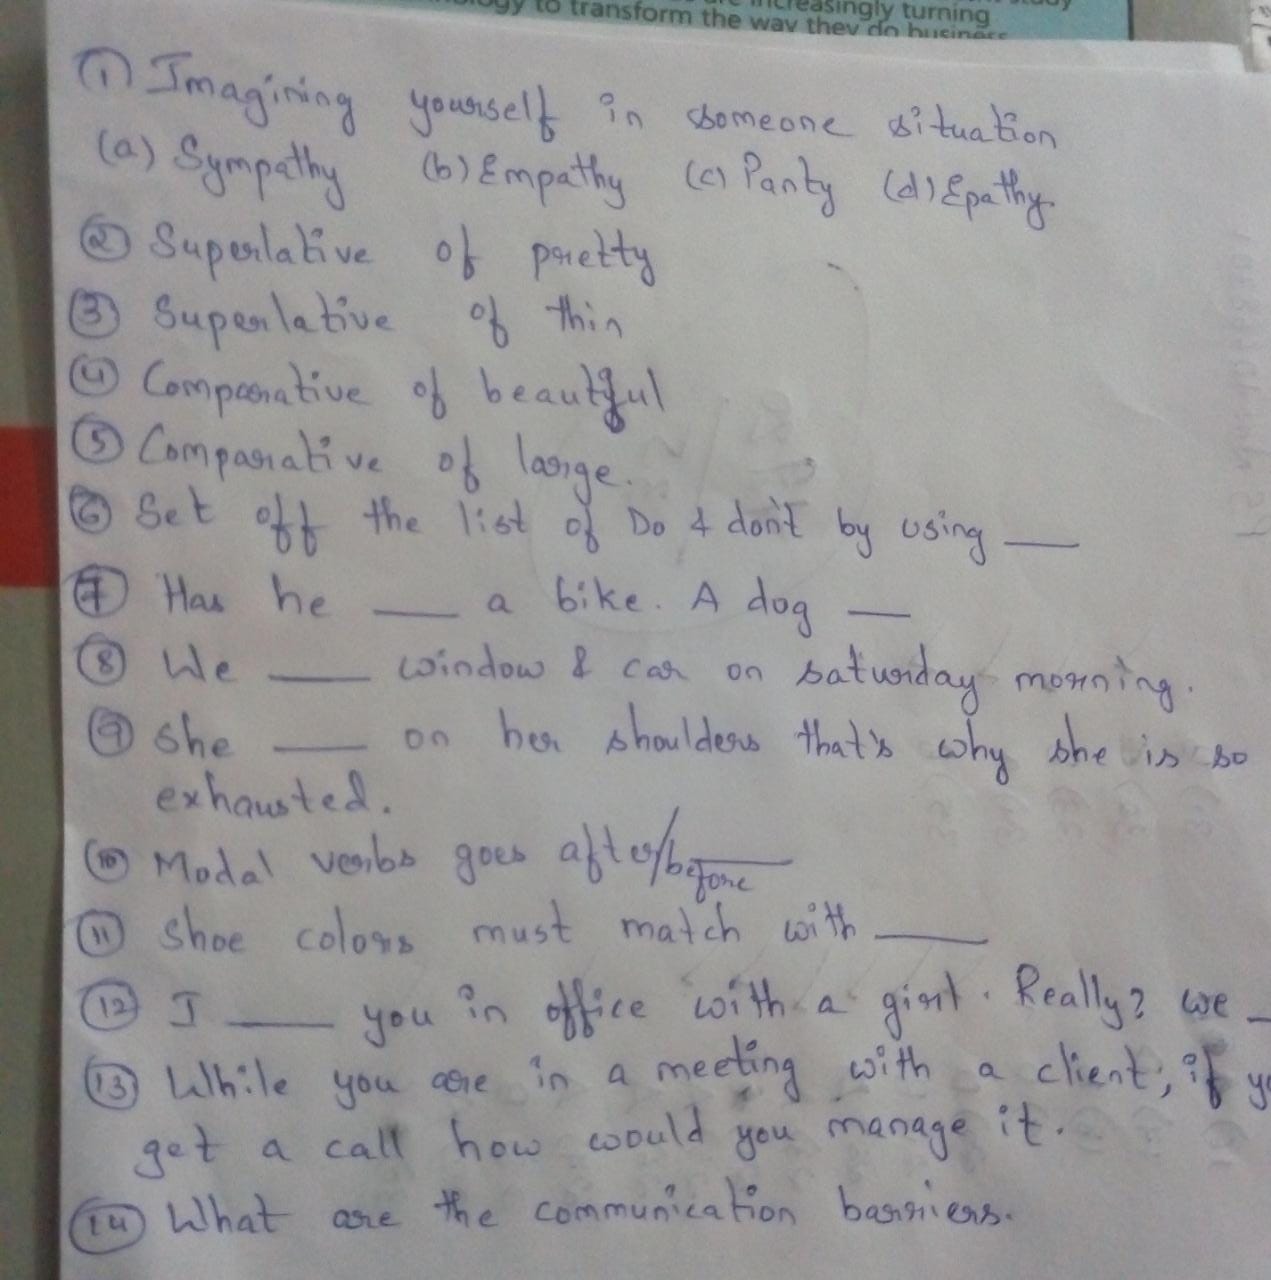 increasingly turning
to transform the way they do business
① Imagining yourself in someone situation
(a) Sympathy (b) Empathy (c) Panty (d) Epathy
② Superlative of pretty
③ Superlative of thin
④ Comparative of beautiful
⑤ Comparative of large.
⑥ Set off the list of Do & don't by using ___
⑦ Has he ___ a bike. A dog ___
⑧ We ___ window & car on saturday morning.
⑨ She ___ on her shoulders that's why she is so
exhausted.
⑩ Modal verbs goes after/before ___
⑪ Shoe colors must match with ___
⑫ I ___ you in office with a girl. Really? we _
⑬ While you are in a meeting with a client, if
get a call how would you manage it.
⑭ What are the communication barriers.